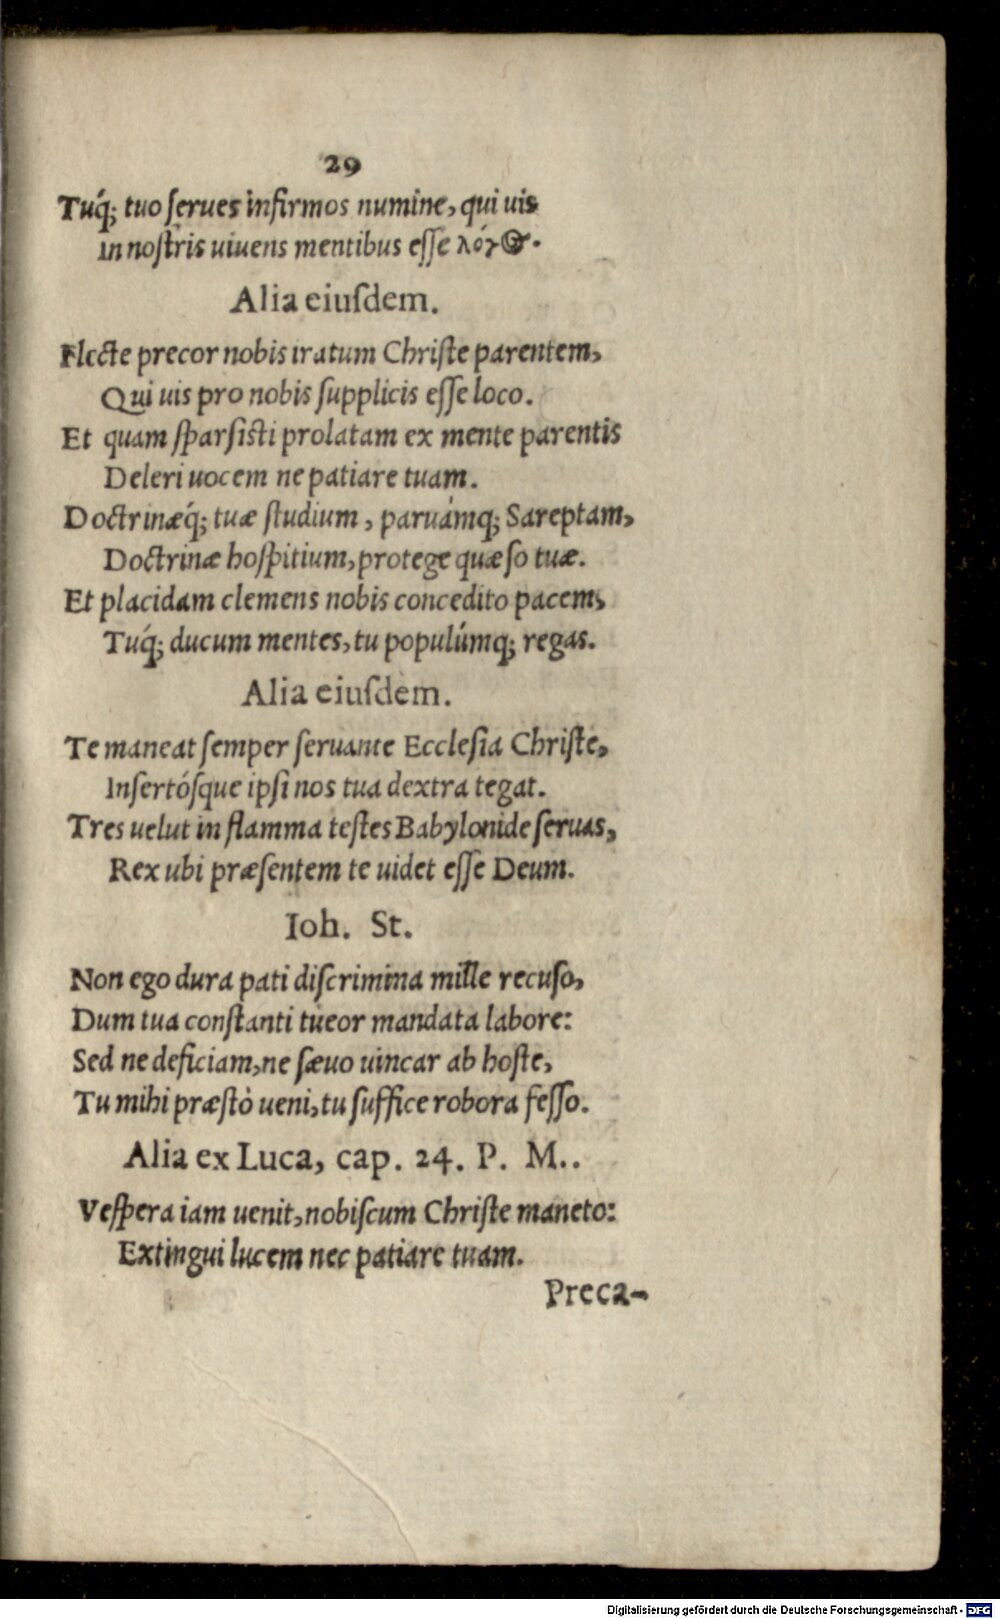 29
Tuq́; tuo ſerues infirmos numine, qui uis
in noſtris uiuens mentibus eſſe λόγος.
Alia eiuſdem.
Flecte precor nobis iratum Chriſte parentem,
Qui uis pro nobis ſupplicis eſſe loco.
Et quam ſparſisti prolatam ex mente parentis
Deleri uocem ne patiare tuam.
Doctrinæq́; tuæ ſtudium, paruámq; Sareptam,
Doctrinæ hoſpitium, protege quæſo tuæ.
Et placidam clemens nobis concedito pacem,
Tuq́; ducum mentes, tu populúmq; regas.
Alia eiuſdem.
Te maneat ſemper ſeruante Eccleſia Chriſte,
Inſertóſque ipſi nos tua dextra tegat.
Tres uelut in flamma teſtes Babylonide ſeruas,
Rex ubi præſentem te uidet eſſe Deum.
Ioh. St.
Non ego dura pati diſcrimina mille recuſo,
Dum tua conſtanti tueor mandata labore:
Sed ne deficiam, ne ſæuo uincar ab hoſte,
Tu mihi præſtò ueni, tu ſuffice robora feſſo.
Alia ex Luca, cap. 24. P. M..
Veſpera iam uenit, nobiſcum Chriſte maneto:
Extingui lucem nec patiare tuam.
Preca-
Digitalisierung gefördert durch die Deutsche Forschungsgemeinschaft - DFG